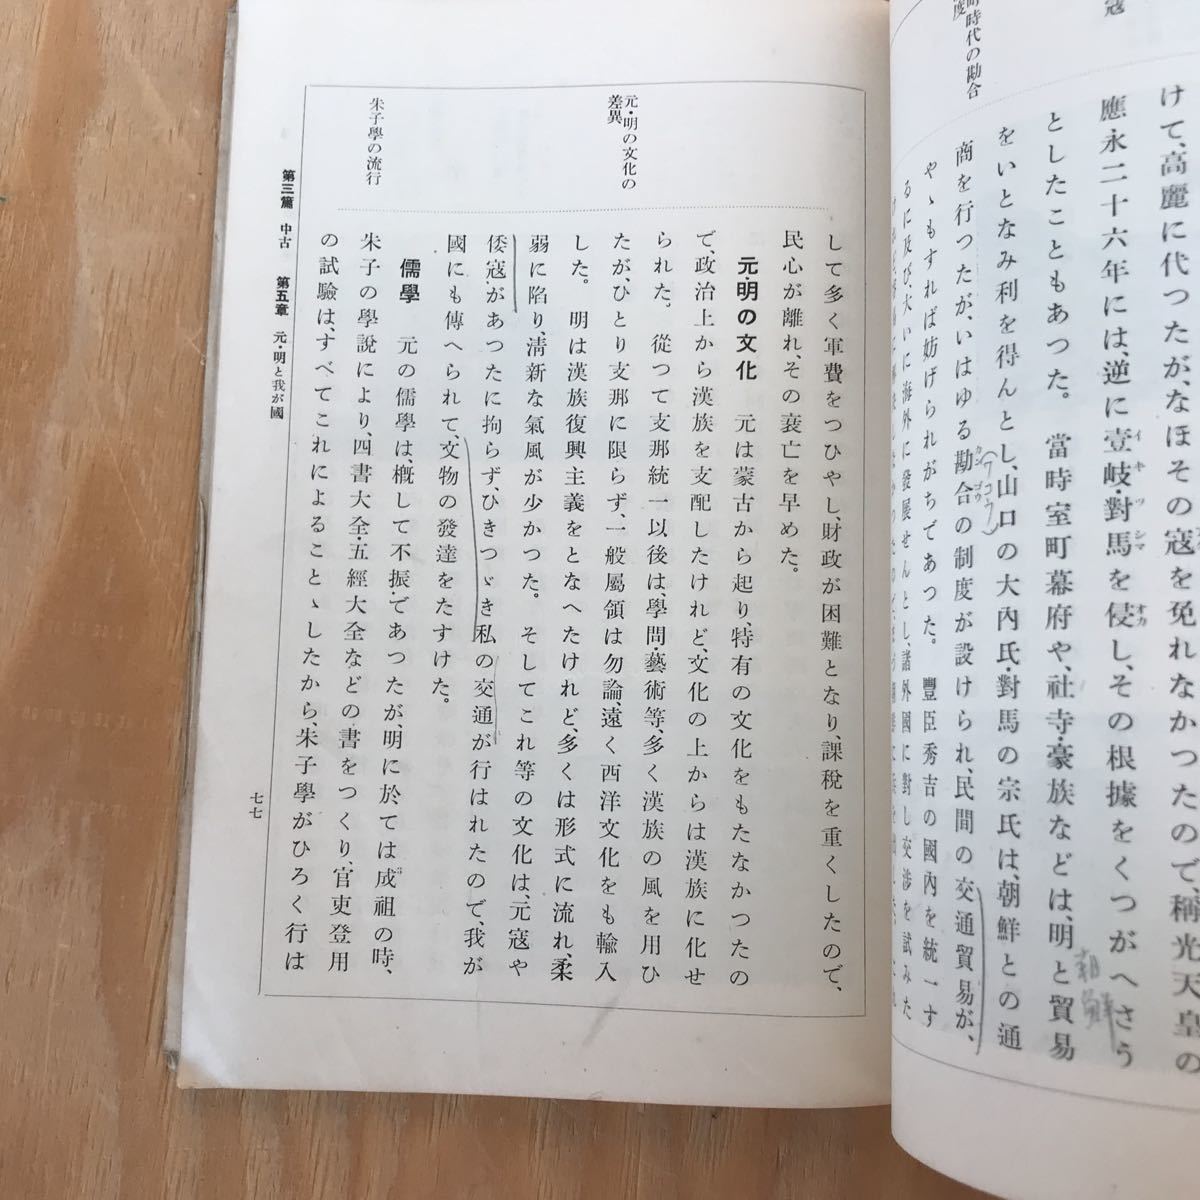 寇
町時代の勘合
度
けて、高麗に代つたが、なほその寇を免れなかつたので、稱光天皇の
應永二十六年には、逆に壹岐・對馬を侵し、その根據をくつがへさう
イキ
ツシマ
オカ
としたこともあつた。 當時室町幕府や、社寺・豪族などは、明と貿易
朝鮮
をいとなみ利を得んとし、山口の大內氏・對馬の宗氏は、朝鮮との通
商を行つたが、いはゆる勘合の制度が設けられ、民間の交通貿易が、
カンゴウ
(ワコウ)
やゝもすれば妨げられがちであつた。 豐臣秀吉の國內を統一す
るに及び、大いに海外に發展せんとし、諸外國に對し交涉を試みた
元・明の文化の
差異
朱子學の流行
して多く軍費をつひやし、財政が困難となり、課稅を重くしたので、
民心が離れ、その衰亡を早めた。
元・明の文化 元は蒙古から起り、特有の文化をもたなかつたの
で政治上から漢族を支配したけれど、文化の上からは漢族に化せ
られた。 從つて支那統一以後は、學問・藝術等、多く漢族の風を用ひ
たが、ひとり支那に限らず、一般屬領は勿論、遠く西洋文化をも輸入
した。 明は漢族復興主義をとなへたけれど、多くは形式に流れ、柔
弱に陷り、淸新な氣風が少かつた。 そしてこれ等の文化は、元寇や
倭寇があつたに拘らず、ひきつゞき私の交通が行はれたので、我が
國にも傳へられて、文物の發達をたすけた。
儒學 元の儒學は、槪して不振であつたが、明に於ては成祖の時、
朱子の學說により、四書大全・五經大全などの書をつくり、官吏登用
の試驗は、すべてこれによることゝしたから、朱子學がひろく行は
第三篇 中古 第五章 元・明と我が國
七七